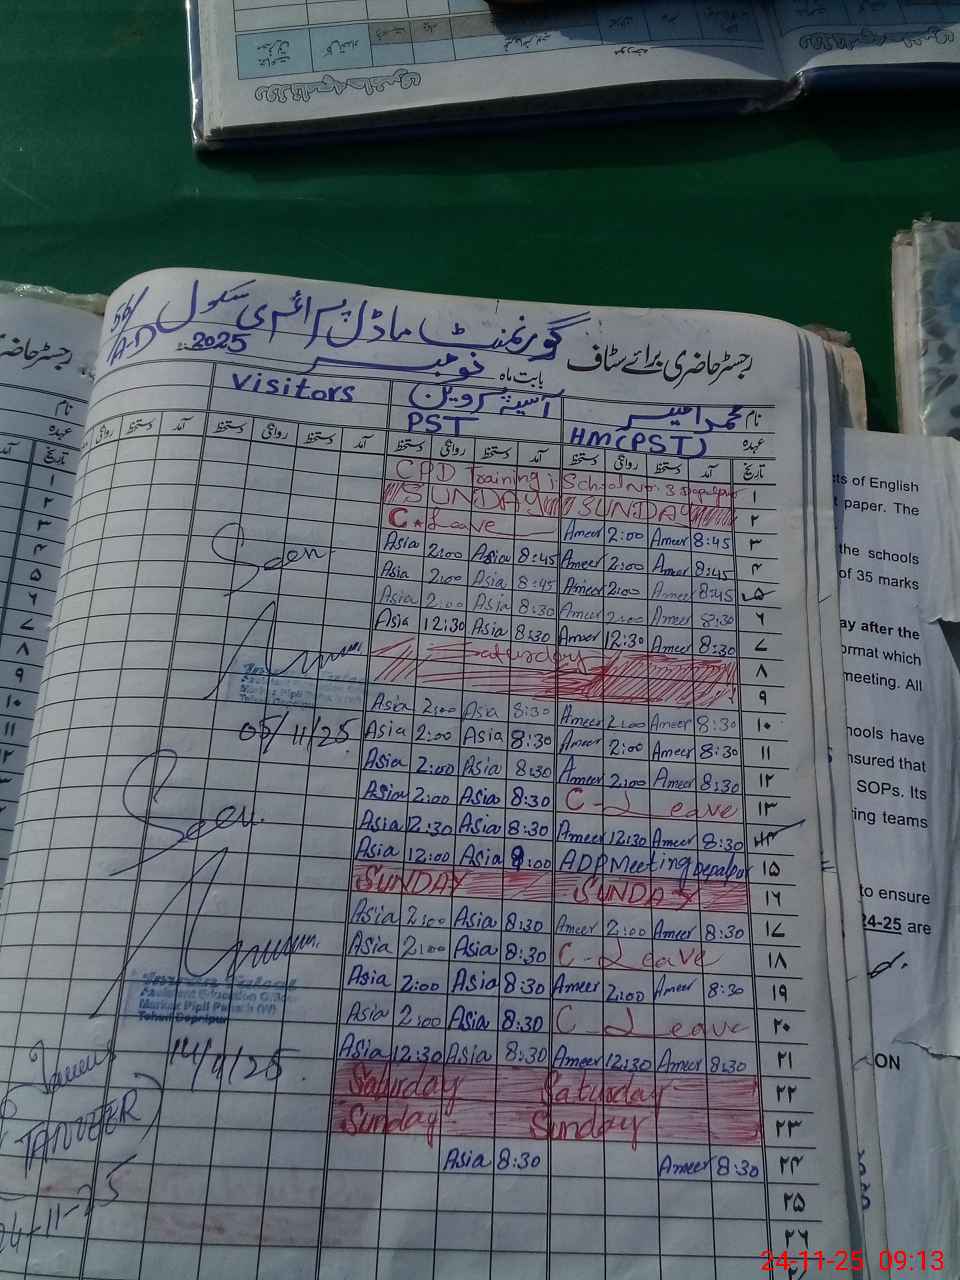 رجسٹر حاضری برائے سٹاف گورنمنٹ ماڈل پرائمری سکول 56/A-D
بابت ماہ نومبر 2025
نام آسیہ پروین Visitors
عہدہ HM(PST) PST
تاریخ آمد دستخط روانگی دستخط آمد دستخط روانگی دستخط آمد دستخط روانگی دستخط آمد دستخط روانگی
۱ CPD Training: School No: 3 Depalpur
۲ SUNDAY SUNDAY
۳ C. Leave Ameer 2:00 Ameer 8:45
۴ Asia 2:00 Asia 8:45 Ameer 2:00 Ameer 8:45
۵ Asia 2:00 Asia 8:45 Ameer 2:00 Ameer 8:45
۶ Asia 2:00 Asia 8:30 Ameer 2:00 Ameer 8:30
۷ Asia 12:30 Asia 8:30 Ameer 12:30 Ameer 8:30
۸ Saturday
۹
۱۰ Asia 2:00 Asia 8:30 Ameer 2:00 Ameer 8:30
۱۱ Asia 2:00 Asia 8:30 Ameer 2:00 Ameer 8:30
۱۲ Asia 2:00 Asia 8:30 Ameer 2:00 Ameer 8:30
۱۳ Asia 2:00 Asia 8:30 C-Leave
۱۴ Asia 12:30 Asia 8:30 Ameer 12:30 Ameer 8:30
۱۵ Asia 12:00 Asia 9:00 ADP Meeting Depalpur
۱۶ SUNDAY SUNDAY
۱۷ Asia 2:00 Asia 8:30 Ameer 2:00 Ameer 8:30
۱۸ Asia 2:00 Asia 8:30 C-Leave
۱۹ Asia 2:00 Asia 8:30 Ameer 2:00 Ameer 8:30
۲۰ Asia 2:00 Asia 8:30 C-Leave
۲۱ Asia 12:30 Asia 8:30 Ameer 12:30 Ameer 8:30
۲۲ Saturday Saturday
۲۳ Sunday Sunday
۲۴ Asia 8:30 Ameer 8:30
۲۵
۲۶
Seen
Assistant Education
Markaz Pipli Pahar (W)
Tehsil Depalpur
05/11/25
Seen
Assistant Education
Markaz Pipli Pahar (W)
Tehsil Depalpur
14/11/25
TANVEER
24-11-25
رجسٹر حاضری
نام
عہدہ
تاریخ
۱
۲
۳
۴
۵
۶
۷
۸
۹
۱۰
۱۱
۱۲
ts of English
paper. The
the schools
of 35 marks
ay after the
ormat which
meeting. All
hools have
nsured that
SOPs. Its
ing teams
to ensure
24-25 are
ON
24-11-25 09:13